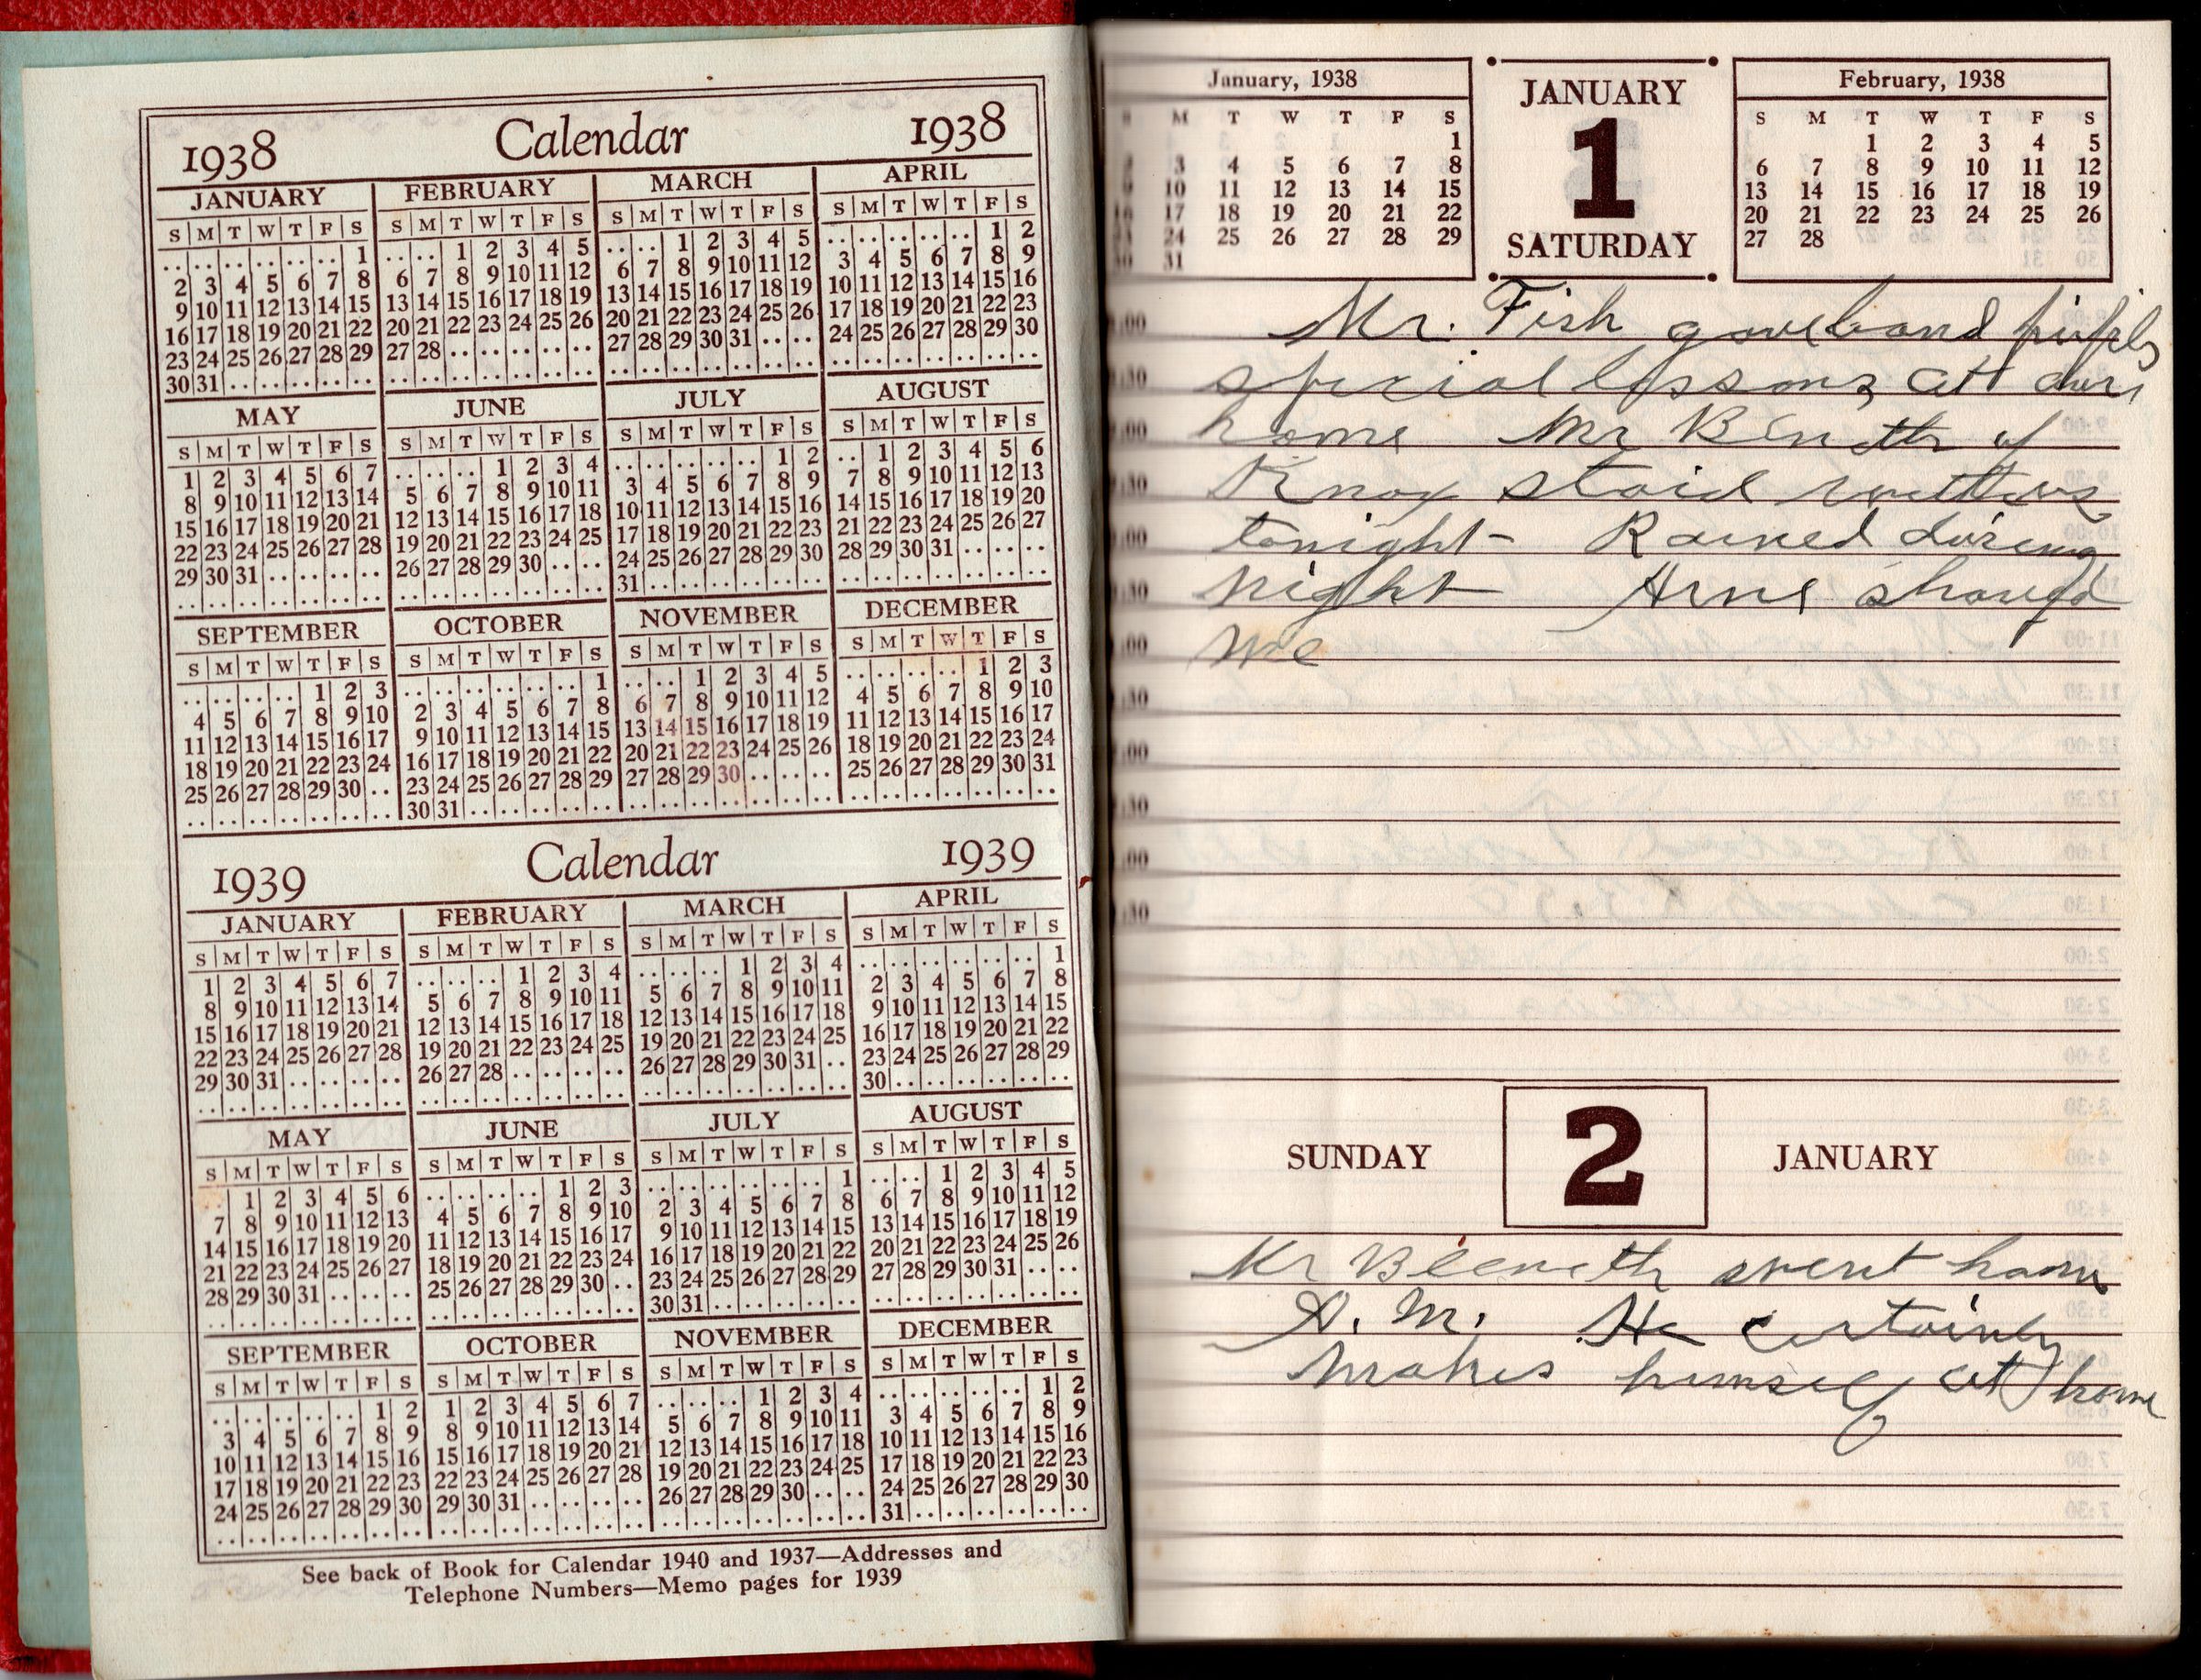 1938 Calendar 1938
JANUARY FEBRUARY MARCH APRIL
S M T W T F S S M T W T F S S M T W T F S S M T W T F S
.. .. .. .. .. .. 1 .. .. 1 2 3 4 5 .. .. 1 2 3 4 5 .. .. .. .. .. 1 2
2 3 4 5 6 7 8 6 7 8 9 10 11 12 6 7 8 9 10 11 12 3 4 5 6 7 8 9
9 10 11 12 13 14 15 13 14 15 16 17 18 19 13 14 15 16 17 18 19 10 11 12 13 14 15 16
16 17 18 19 20 21 22 20 21 22 23 24 25 26 20 21 22 23 24 25 26 17 18 19 20 21 22 23
23 24 25 26 27 28 29 27 28 .. .. .. .. .. 27 28 29 30 31 .. .. 24 25 26 27 28 29 30
30 31 .. .. .. .. .. .. .. .. .. .. .. .. .. .. .. .. .. .. .. .. .. .. .. .. .. ..
MAY JUNE JULY AUGUST
S M T W T F S S M T W T F S S M T W T F S S M T W T F S
1 2 3 4 5 6 7 .. .. .. 1 2 3 4 .. .. .. .. .. 1 2 .. 1 2 3 4 5 6
8 9 10 11 12 13 14 5 6 7 8 9 10 11 3 4 5 6 7 8 9 7 8 9 10 11 12 13
15 16 17 18 19 20 21 12 13 14 15 16 17 18 10 11 12 13 14 15 16 14 15 16 17 18 19 20
22 23 24 25 26 27 28 19 20 21 22 23 24 25 17 18 19 20 21 22 23 21 22 23 24 25 26 27
29 30 31 .. .. .. .. 26 27 28 29 30 .. .. 24 25 26 27 28 29 30 28 29 30 31 .. .. ..
.. .. .. .. .. .. .. .. .. .. .. .. .. .. 31 .. .. .. .. .. .. .. .. .. .. .. .. ..
SEPTEMBER OCTOBER NOVEMBER DECEMBER
S M T W T F S S M T W T F S S M T W T F S S M T W T F S
.. .. .. .. 1 2 3 .. .. .. .. .. .. 1 .. .. 1 2 3 4 5 .. .. .. .. 1 2 3
4 5 6 7 8 9 10 2 3 4 5 6 7 8 6 7 8 9 10 11 12 4 5 6 7 8 9 10
11 12 13 14 15 16 17 9 10 11 12 13 14 15 13 14 15 16 17 18 19 11 12 13 14 15 16 17
18 19 20 21 22 23 24 16 17 18 19 20 21 22 20 21 22 23 24 25 26 18 19 20 21 22 23 24
25 26 27 28 29 30 .. 23 24 25 26 27 28 29 27 28 29 30 .. .. .. 25 26 27 28 29 30 31
.. .. .. .. .. .. .. 30 31 .. .. .. .. .. .. .. .. .. .. .. .. .. .. .. .. .. .. ..
1939 Calendar 1939
JANUARY FEBRUARY MARCH APRIL
S M T W T F S S M T W T F S S M T W T F S S M T W T F S
1 2 3 4 5 6 7 .. .. .. 1 2 3 4 .. .. .. 1 2 3 4 .. .. .. .. .. .. 1
8 9 10 11 12 13 14 5 6 7 8 9 10 11 5 6 7 8 9 10 11 2 3 4 5 6 7 8
15 16 17 18 19 20 21 12 13 14 15 16 17 18 12 13 14 15 16 17 18 9 10 11 12 13 14 15
22 23 24 25 26 27 28 19 20 21 22 23 24 25 19 20 21 22 23 24 25 16 17 18 19 20 21 22
29 30 31 .. .. .. .. 26 27 28 .. .. .. .. 26 27 28 29 30 31 .. 23 24 25 26 27 28 29
.. .. .. .. .. .. .. .. .. .. .. .. .. .. .. .. .. .. .. .. .. 30 .. .. .. .. .. ..
MAY JUNE JULY AUGUST
S M T W T F S S M T W T F S S M T W T F S S M T W T F S
.. 1 2 3 4 5 6 .. .. .. .. 1 2 3 .. .. .. .. .. .. 1 .. .. 1 2 3 4 5
7 8 9 10 11 12 13 4 5 6 7 8 9 10 2 3 4 5 6 7 8 6 7 8 9 10 11 12
14 15 16 17 18 19 20 11 12 13 14 15 16 17 9 10 11 12 13 14 15 13 14 15 16 17 18 19
21 22 23 24 25 26 27 18 19 20 21 22 23 24 16 17 18 19 20 21 22 20 21 22 23 24 25 26
28 29 30 31 .. .. .. 25 26 27 28 29 30 .. 23 24 25 26 27 28 29 27 28 29 30 31 .. ..
.. .. .. .. .. .. .. .. .. .. .. .. .. .. 30 31 .. .. .. .. .. .. .. .. .. .. .. ..
SEPTEMBER OCTOBER NOVEMBER DECEMBER
S M T W T F S S M T W T F S S M T W T F S S M T W T F S
.. .. .. .. .. 1 2 1 2 3 4 5 6 7 .. .. .. 1 2 3 4 .. .. .. .. .. 1 2
3 4 5 6 7 8 9 8 9 10 11 12 13 14 5 6 7 8 9 10 11 3 4 5 6 7 8 9
10 11 12 13 14 15 16 15 16 17 18 19 20 21 12 13 14 15 16 17 18 10 11 12 13 14 15 16
17 18 19 20 21 22 23 22 23 24 25 26 27 28 19 20 21 22 23 24 25 17 18 19 20 21 22 23
24 25 26 27 28 29 30 29 30 31 .. .. .. .. 26 27 28 29 30 .. .. 24 25 26 27 28 29 30
.. .. .. .. .. .. .. .. .. .. .. .. .. .. .. .. .. .. .. .. .. 31 .. .. .. .. .. ..
See back of Book for Calendar 1940 and 1937—Addresses and
Telephone Numbers—Memo pages for 1939
January, 1938
S M T W T F S
1
2 3 4 5 6 7 8
9 10 11 12 13 14 15
16 17 18 19 20 21 22
23 24 25 26 27 28 29
30 31
JANUARY
1
SATURDAY
February, 1938
S M T W T F S
1 2 3 4 5
6 7 8 9 10 11 12
13 14 15 16 17 18 19
20 21 22 23 24 25 26
27 28
Mr. Fish gave band pupils
special lessons at our
home Mr of
Knox staid with us
tonight - Rained during
night Arne
me
SUNDAY 2 JANUARY
Mr went home
A. M. He certainly
makes himself at home